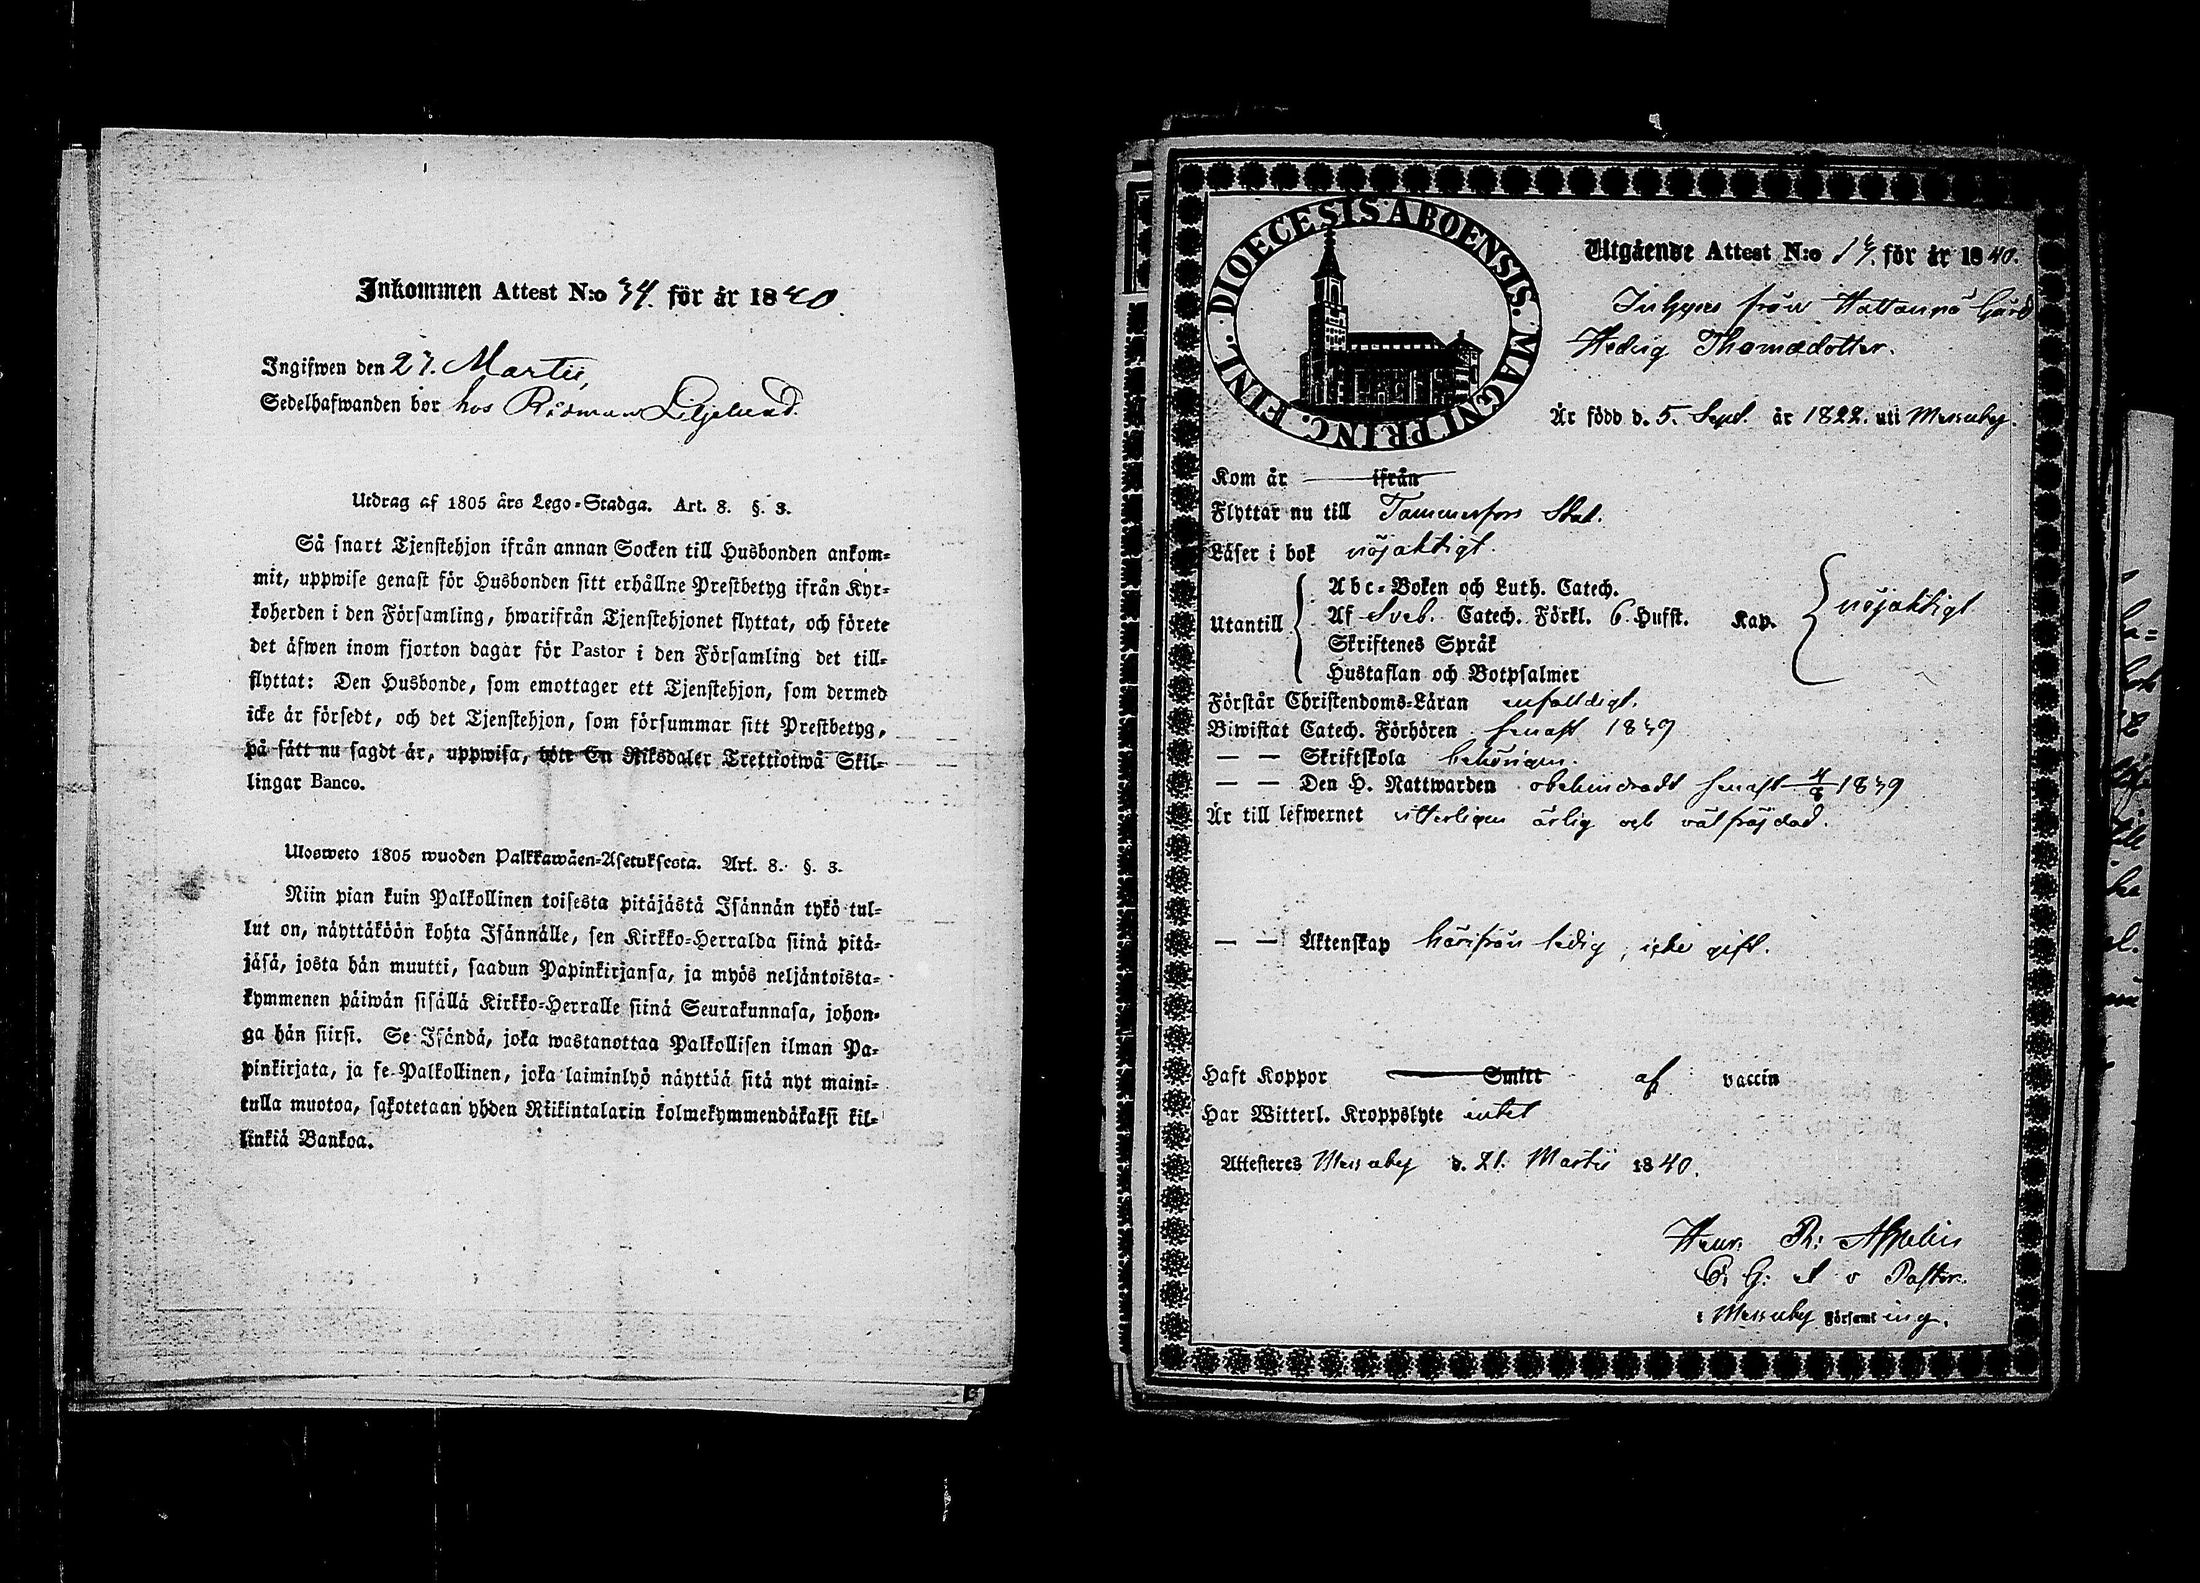 Inkommen Attest N:o 34. för år 1840.
Ingifwen den 27. Martii,
Sedelhafwanden bor hos Rådman Liljelund.
Utdrag af 1805 års Lego-Stadga. Art. 8. §. 3.
Så snart Tjenstehjon ifrån annan Socken till Husbonden ankom-
mit, uppwise genast för Husbonden sitt erhållne Prestbetyg ifrån Kyr-
koherden i den Församling, hwarifrån Tjenstehjonet flyttat, och förete
det äfwen inom fjorton dagar för Pastor i den Församling det till-
flyttat: Den Husbonde, som emottager ett Tjenstehjon, som dermed
icke är försedt, och det Tjenstehjon, som försummar sitt Prestbetyg,
på sätt nu sagdt är, uppwisa, böte En Riksdaler Trettiotwå Skil-
lingar Banco.
Ulosweto 1805 wuoden Palkkawäen-Asetuksesta. Art. 8. §. 3.
Niin pian kuin Palkollinen toisesta pitäjästä Isännän tykö tul-
lut on, näyttäköön kohta Isännälle, sen Kirkko-Herralda siinä pitä-
jäsä, josta hän muutti, saadun Papinkirjansa, ja myös neljäntoista-
kymmenen päiwän sisällä Kirkko-Herralle siinä Seurakunnasa, johon-
ga hän siirsi. Se Isändä, joka wastanottaa Palkollisen ilman Pa-
pinkirjata, ja se Palkollinen, joka laiminlyö näyttää sitä nyt maini-
tulla muotoa, sakotetaan yhden Riikintalarin kolmekymmendäkaksi kil-
linkiä Bankoa.
DIOECESIS ABOENSIS. MAGNI PRINC. FINL.
Utgående Attest N:o för år 1840.
från Hattanpä Gård
Hedvig Thomædotter.
Är född d. 5. Sept. år 1822. uti Messuby.
Kom år ifrån
Flyttar nu till Tammerfors Stad.
Läser i bok nöjaktigt.
Abc-Boken och Luth. Catech.
Utantill Af Sveb. Catech. Förkl. 6 Hufst. Kap. nöjaktigt
Skriftenes Språk
Hustaflan och Botpsalmer
Förstår Christendoms-Läran enfaldigt.
Biwistat Catech. Förhören senast 1839
— — Skriftskola behörigen.
— — Den H. Nattwarden obehindradt senast 1839
Är till lefwernet witterligen ärlig och välfräjdad.
— — Äktenskap härifrån ledig, icke gift.
Haft Koppor Smitt af vaccin
Har Witterl. Kroppslyte intet
Attesteres Messuby d. 21. Martii 1840.
Henr. Th:
Pastor.
i Messuby Församling.